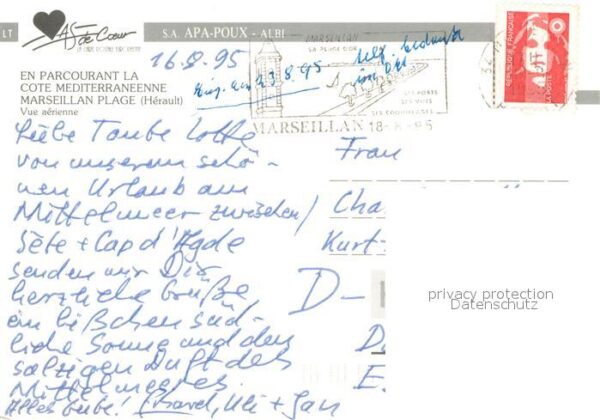 LT
AS de Cœur
S.A. APA-POUX - ALBI
16.8.95
EN PARCOURANT LA
COTE MEDITERRANEENNE
MARSEILLAN PLAGE (Hérault)
Vue aérienne
23.8.95
tel. bedankt
MARSEILLAN
SA PLAGE D'OR
SES PORTS
SES VINS
SES COQUILLAGES
MARSEILLAN 18-8-95
REPUBLIQUE FRANÇAISE
LA POSTE
Liebe Tante Lotte
von unserem schö-
nen Urlaub am
Mittelmeer zwischen
Sète + Cap d'Agde
senden wir Dir
herzliche Grüße
ein bißchen süd-
liche Sonne und den
salzigen Duft des
Mittelmeeres.
Alles Liebe! Uli + Jan
Frau
Cha
Kurt-
D-
D
E.
privacy protection
Datenschutz